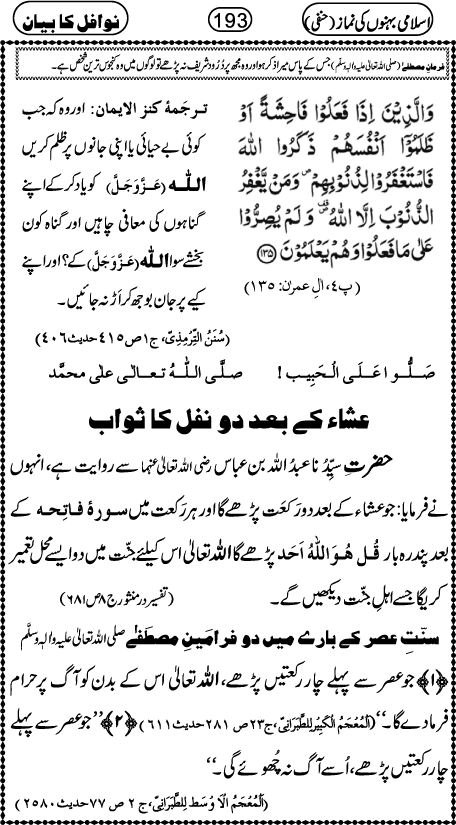 اسلامی بہنوں کی نماز (حنفی)
193
نوافل کا بیان
فرمانِ مصطفےٰ (صلی اللہ تعالیٰ علیہ والہ وسلم) جس کے پاس میرا ذکر ہو اور وہ مجھ پر دُرُود شریف نہ پڑھے تو لوگوں میں وہ کنجوس ترین شخص ہے۔
وَالَّذِيْنَ اِذَا فَعَلُوْا فَاحِشَةً اَوْ
ظَلَمُوْۤا اَنْفُسَهُمْ ذَكَرُوا اللّٰهَ
فَاسْتَغْفَرُوْا لِذُنُوْبِهِمْ۪ وَمَنْ يَّغْفِرُ
الذُّنُوْبَ اِلَّا اللّٰهُ۪۫ وَلَمْ يُصِرُّوْا
عَلٰى مَا فَعَلُوْا وَهُمْ يَعْلَمُوْنَ ﴿۱۳۵﴾
(پ٤، اٰلِ عمرٰن: ۱۳۵)
ترجَمۂ کنز الایمان: اور وہ کہ جب
کوئی بے حیائی یا اپنی جانوں پر ظلم کریں
اللہ (عَزَّوَجَلَّ) کو یاد کر کے اپنے
گناہوں کی معافی چاہیں اور گناہ کون
بخشے سوا اللہ (عَزَّوَجَلَّ) کے؟ اور اپنے
کیے پر جان بوجھ کر اَڑ نہ جائیں۔
(سُنَنُ التِّرْمِذِیّ، ج۱ ص۴۱۵ حدیث۴۰۶)
صَلُّوا عَلَی الْحَبِیب! صلَّی اللّٰہُ تعالٰی علٰی محمَّد
عشاء کے بعد دو نفل کا ثواب
حضرتِ سیِّدُنا عبدُ اللہ بن عباس رضی اللہ تعالیٰ عنہما سے روایت ہے، انہوں
نے فرمایا: جو عشاء کے بعد دو رکعَت پڑھے گا اور ہر رکعت میں سورۂ فاتِحہ کے
بعد پندرہ بار قُل ھُوَ اللّٰہُ اَحَد پڑھے گا اللہ تعالیٰ اس کیلئے جنّت میں دو ایسے محل تعمیر
کریگا جسے اہلِ جنّت دیکھیں گے۔ (تفسیر درمنثور ج۸ ص۶۸۱)
سنّتِ عصر کے بارے میں دو فرامینِ مصطفےٰ صلی اللہ تعالیٰ علیہ والہٖ وسلَّم
﴿۱﴾ جو عصر سے پہلے چار رکعتیں پڑھے، اللہ تعالیٰ اس کے بدن کو آگ پر حرام
فرما دے گا۔“ (اَلْمُعْجَمُ الْكَبِيْر لِلطَّبَرَانِیّ، ج۲۳ ص ۲۸۱ حدیث۶۱۱) ﴿۲﴾ ”جو عصر سے پہلے
چار رکعتیں پڑھے، اُسے آگ نہ چُھوئے گی۔“
(اَلْمُعْجَمُ الْاَوْسَط لِلطَّبَرَانِیّ، ج ۲ ص ۷۷ حدیث ۲۵۸۰)